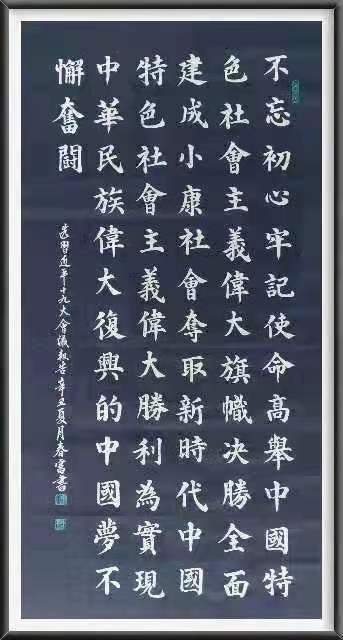 不忘初心牢記使命高舉中國特
色社會主義偉大旗幟决勝全面
建成小康社會奪取新時代中國
特色社會主義偉大勝利為實現
中華民族偉大復興的中國夢不
懈奮鬪
習近平十九大會議報告辛丑夏月春富書